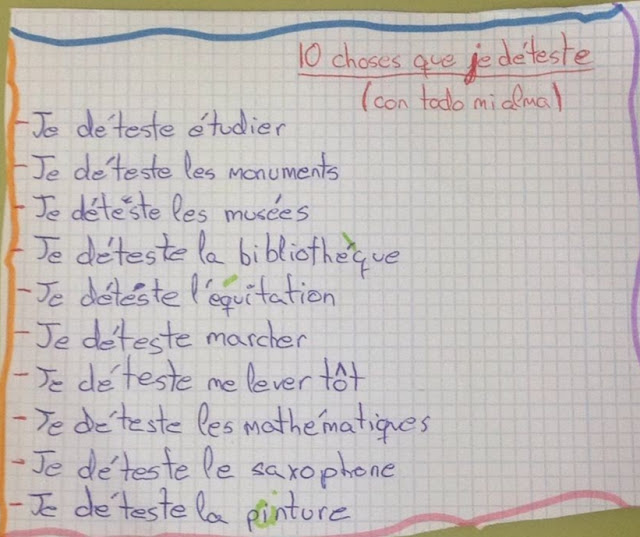 10 choses que je déteste
(con todo mi alma)
- Je déteste étudier
- Je déteste les monuments
- Je déteste les musées
- Je déteste la bibliothèque
- Je déteste l'équitation
- Je déteste marcher
- Je déteste me lever tôt
- Je déteste les mathématiques
- Je déteste le saxophone
- Je déteste la pinture